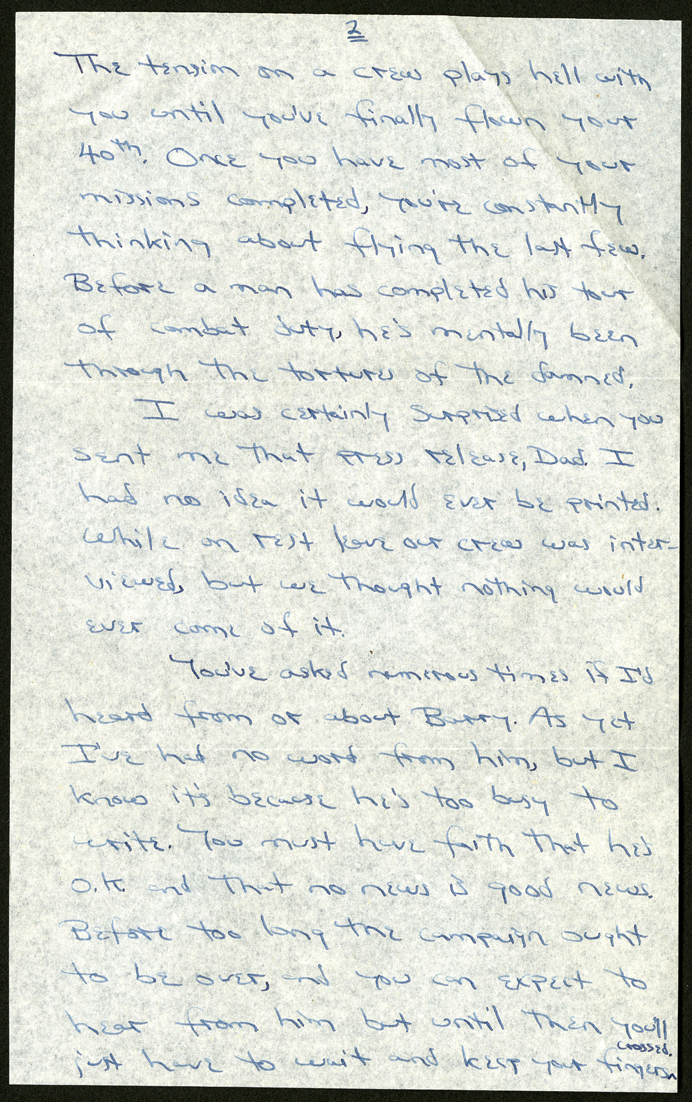 2
The tension on a crew plays hell with
you until you've finally flown your
40th. Once you have most of your
missions completed, you're constantly
thinking about flying the last few.
Before a man has completed his tour
of combat duty, he's mentally been
through the tortures of the damned.
I was certainly surprised when you
sent me that press release, Dad. I
had no idea it would ever be printed.
While on rest leave our crew was inter-
viewed, but we thought nothing would
ever come of it.
You've asked numerous times if I'd
heard from or about Barry. As yet
I've had no word from him, but I
know it's because he's too busy to
write. You must have faith that he's
O.K. and that no news is good news.
Before too long the campaign ought
to be over, and you can expect to
hear from him but until then you'll
just have to wait and keep your fingers crossed.